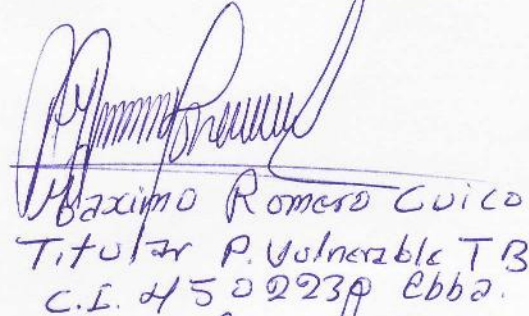 Maximo Romero Cuico
Titular P. Vulnerable TB
C.I. 4502239 Cbba.